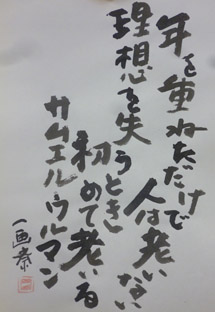 年を重ねただけで
人は老いない
理想を失うとき
初めて老いる
サムエル・ウルマン
一画泰